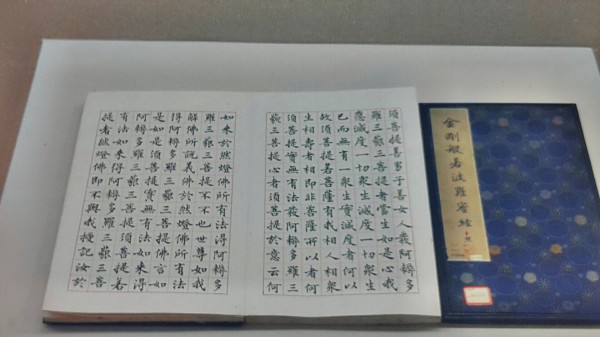 金剛般若波羅蜜經
須菩提善男子善女人發阿耨多
羅三藐三菩提者當生如是心我
應滅度一切衆生滅度一切衆生
已而無有一衆生實滅度者何以
故須菩提若菩薩有我相人相衆
生相壽者相即非菩薩所以者何
須菩提實無有法發阿耨多羅三
藐三菩提心者須菩提於意云何
如來於然燈佛所有法得阿耨多
羅三藐三菩提不不也世尊如我
解佛所說義佛於然燈佛所有法
得阿耨多羅三藐三菩提佛言如
是如是須菩提實無有法如來得
阿耨多羅三藐三菩提須菩提若
有法如來得阿耨多羅三藐三菩
提者然燈佛即不與我授記汝於